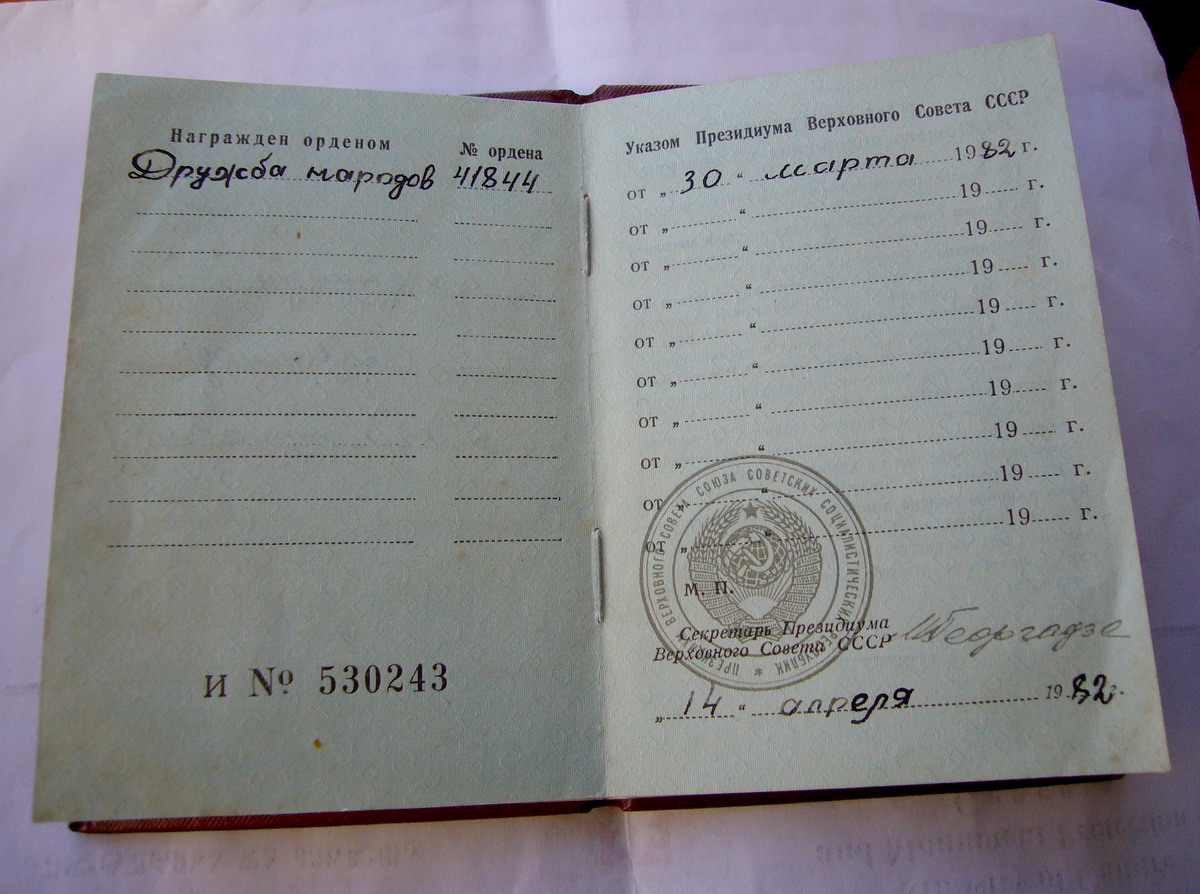 Награжден орденом
№ ордена
Дружба народов 41844
и № 530243
Указом Президиума Верховного Совета СССР
от „ 30 “ марта 1982 г.
от „ “ 19 г.
от „ “ 19 г.
от „ “ 19 г.
от „ “ 19 г.
от „ “ 19 г.
от „ “ 19 г.
от „ “ 19 г.
от „ “ 19 г.
от „ “ 19 г.
ПРЕЗИДИУМ ВЕРХОВНОГО СОВЕТА СОЮЗА СОВЕТСКИХ СОЦИАЛИСТИЧЕСКИХ РЕСПУБЛИК
М. П.
Секретарь Президиума
Верховного Совета СССР
МГеоргадзе
„ 14 “ апреля 1982 г.